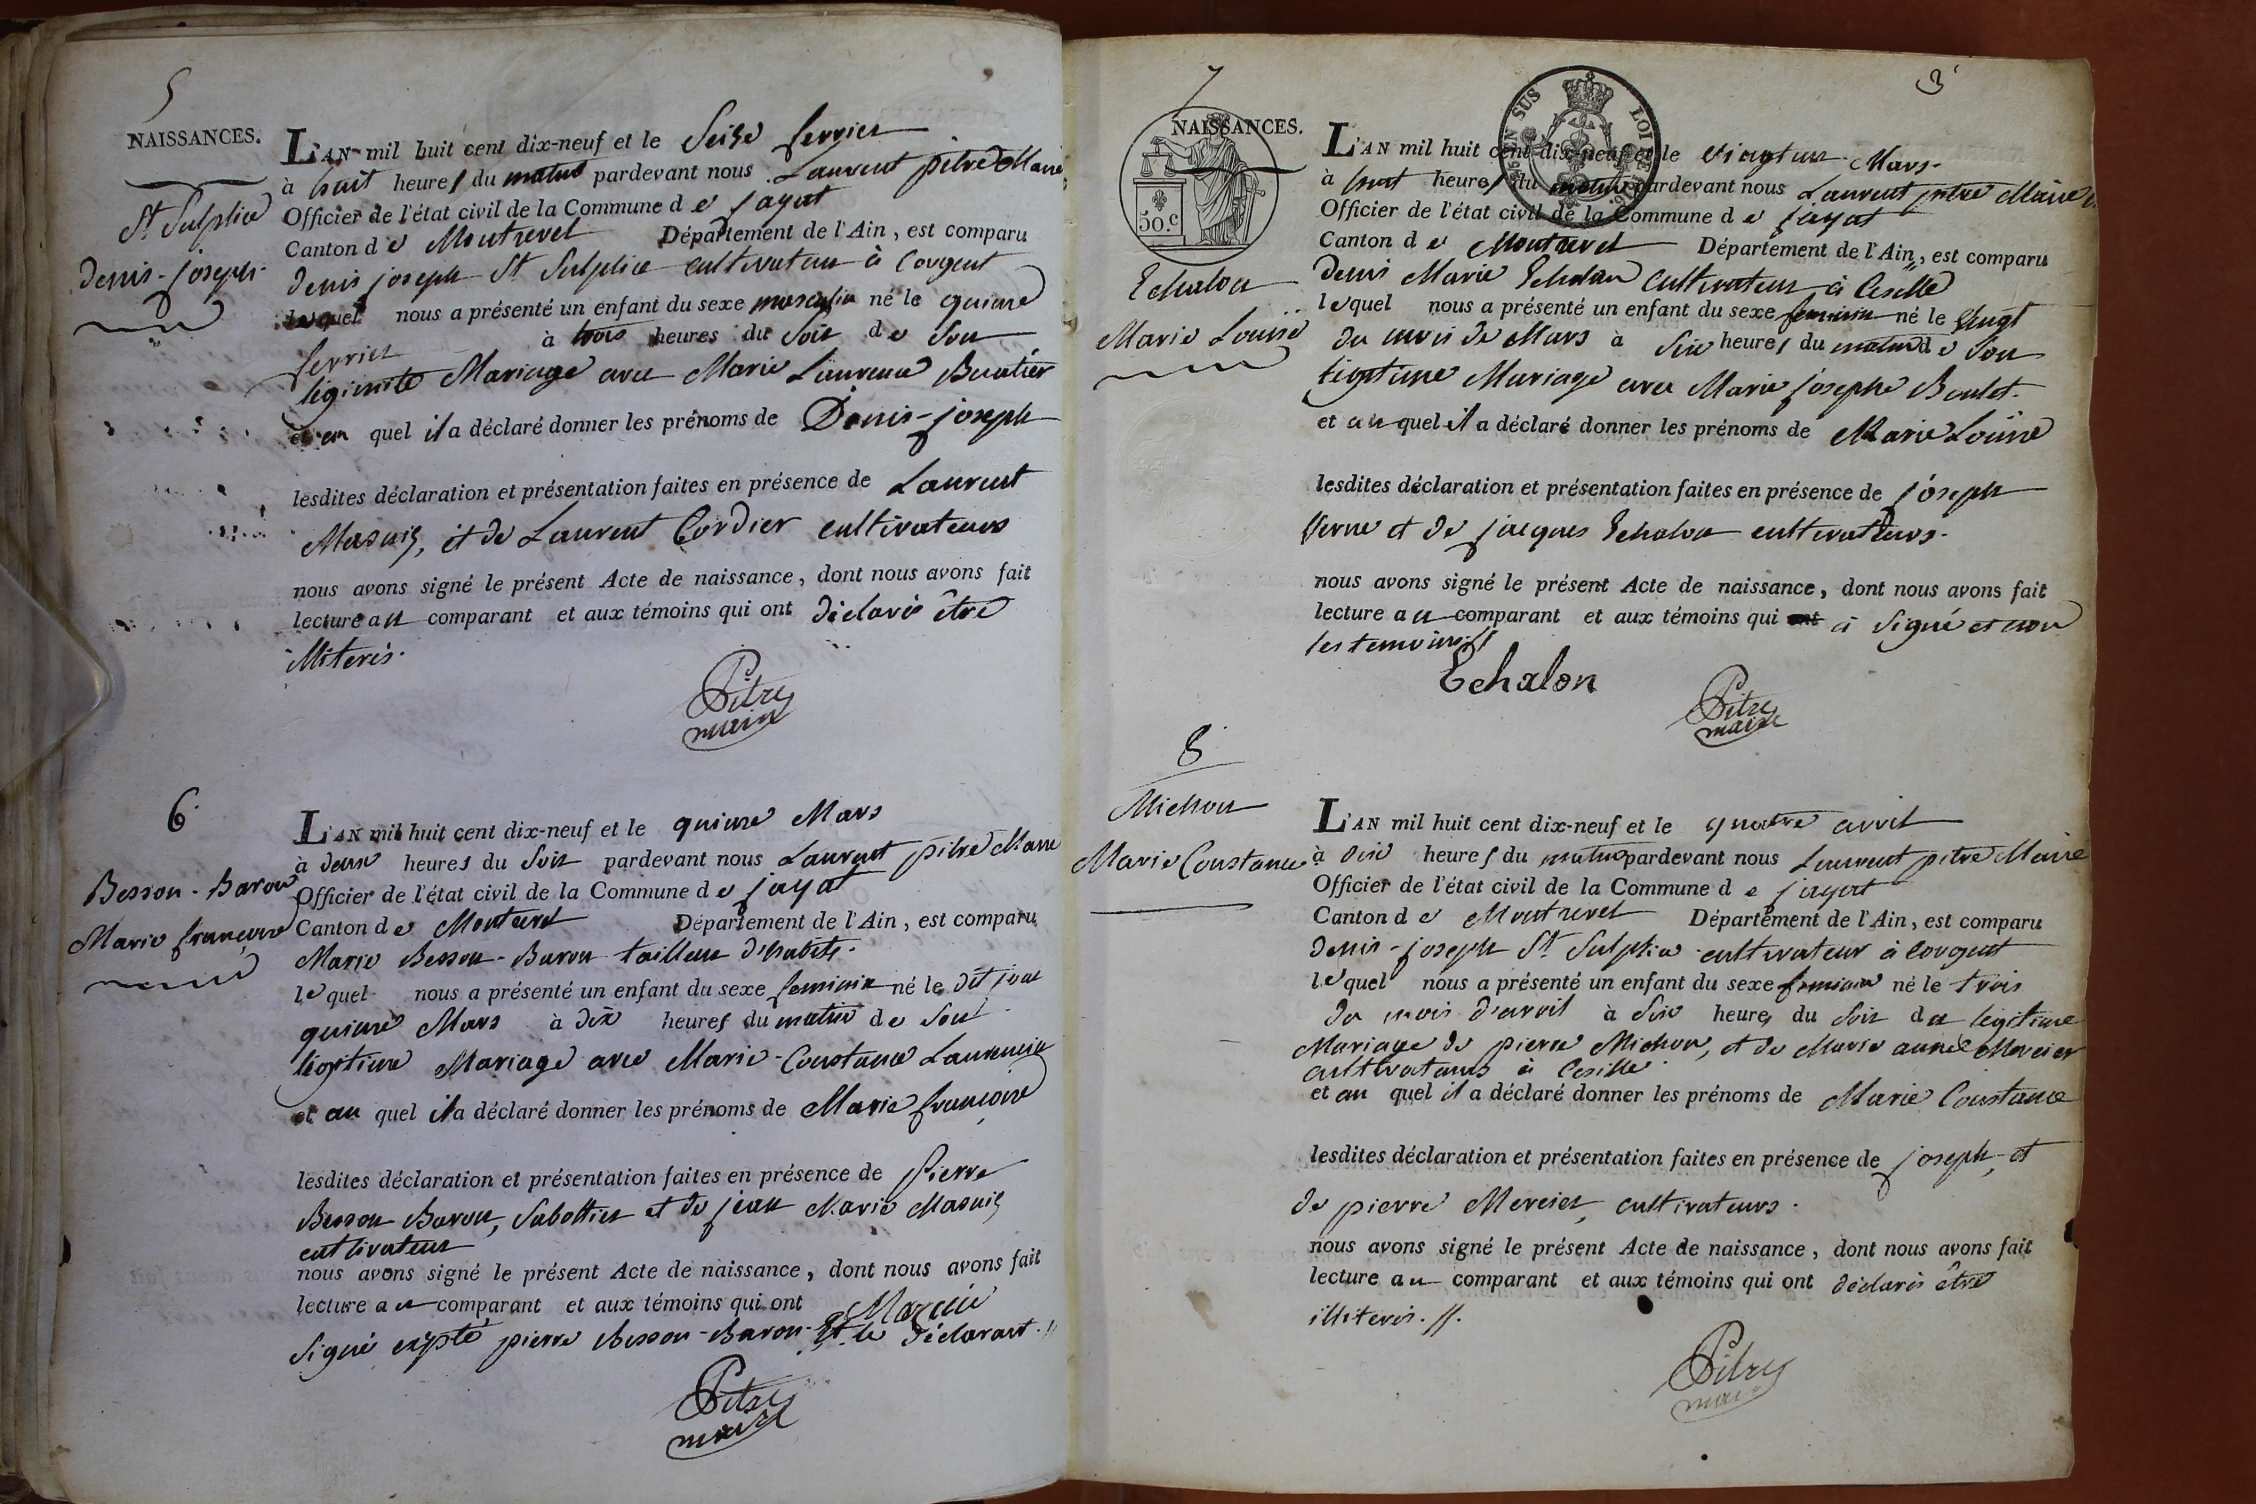 5
NAISSANCES.
St Sulpice
denis-joseph.
L'AN mil huit cent dix-neuf et le Seize fevrier
à huit heures du matin pardevant nous Laurent pitre Maire
Officier de l'état civil de la Commune de jayat
Canton de Montrevel Département de l'Ain, est comparu
denis joseph St Sulpice cultivateur à Congent
lequel nous a présenté un enfant du sexe masculin né le quinze
fevrier à trois heures du Soir de Son
légimite Mariage avec Marie Laurence Buatier
et au quel il a déclaré donner les prénoms de Denis-joseph
lesdites déclaration et présentation faites en présence de Laurent
Masuis, et de Laurent Cordier cultivateurs
nous avons signé le présent Acte de naissance, dont nous avons fait
lecture au comparant et aux témoins qui ont déclarés être
illiterés.
Pitre
maire
6
Besson-Baron
Marie françoise
L'AN mil huit cent dix-neuf et le quinze Mars
à deux heures du Soir pardevant nous Laurent pitre Maire
Officier de l'état civil de la Commune de jayat
Canton de Montrevel Département de l'Ain, est comparu
Marie Besson-Baron tailleur d'habits.
lequel nous a présenté un enfant du sexe feminin né le dit jour
quinze Mars à dix heures du matin de Son
légitime Mariage avec Marie-Constance Laurencin
et au quel il a déclaré donner les prénoms de Marie françoise
lesdites déclaration et présentation faites en présence de Pierre
Besson-Baron, Sabottier et de jean Marie Masuis
cultivateur
nous avons signé le présent Acte de naissance, dont nous avons fait
lecture au comparant et aux témoins qui ont
Signé expté pierre Besson-Baron et le déclarant.
Pitre
maire
7
3
NAISSANCES.
50.c
Echalon
Marie Louise
L'AN mil huit cent dix-neuf et le vingt un Mars.
à huit heures du matin pardevant nous Laurent pitre Maire
Officier de l'état civil de la Commune de jayat
Canton de Montrevel Département de l'Ain, est comparu
denis Marie Echalon Cultivateur à Cesille
lequel nous a présenté un enfant du sexe feminin né le Vingt
du mois de Mars à Six heures du matin de Son
légitime Mariage avec Marie josephe Boulet.
et au quel il a déclaré donner les prénoms de Marie Louise
lesdites déclaration et présentation faites en présence de joseph
Verne et de jacques Echalon cultivateurs.
nous avons signé le présent Acte de naissance, dont nous avons fait
lecture au comparant et aux témoins qui ont à Signé et non
les temoins.//
Echalon
Pitre
maire
8
Michon
Marie Constance
L'AN mil huit cent dix-neuf et le quatre avril
à dix heures du matin pardevant nous Laurent pitre Maire
Officier de l'état civil de la Commune de jayat
Canton de Montrevel Département de l'Ain, est comparu
denis-joseph St Sulpice cultivateur à Congent
lequel nous a présenté un enfant du sexe feminin né le trois
du mois d'avril à Six heures du Soir du légitime
Mariage de pierre Michon, et de Marie anne Mercier
cultivateurs à Cesille
et au quel il a déclaré donner les prénoms de Marie Constance
lesdites déclaration et présentation faites en présence de joseph, et
de pierre Mercier, cultivateurs.
nous avons signé le présent Acte de naissance, dont nous avons fait
lecture au comparant et aux témoins qui ont déclarés être
illiterés.//.
Pitre
maire